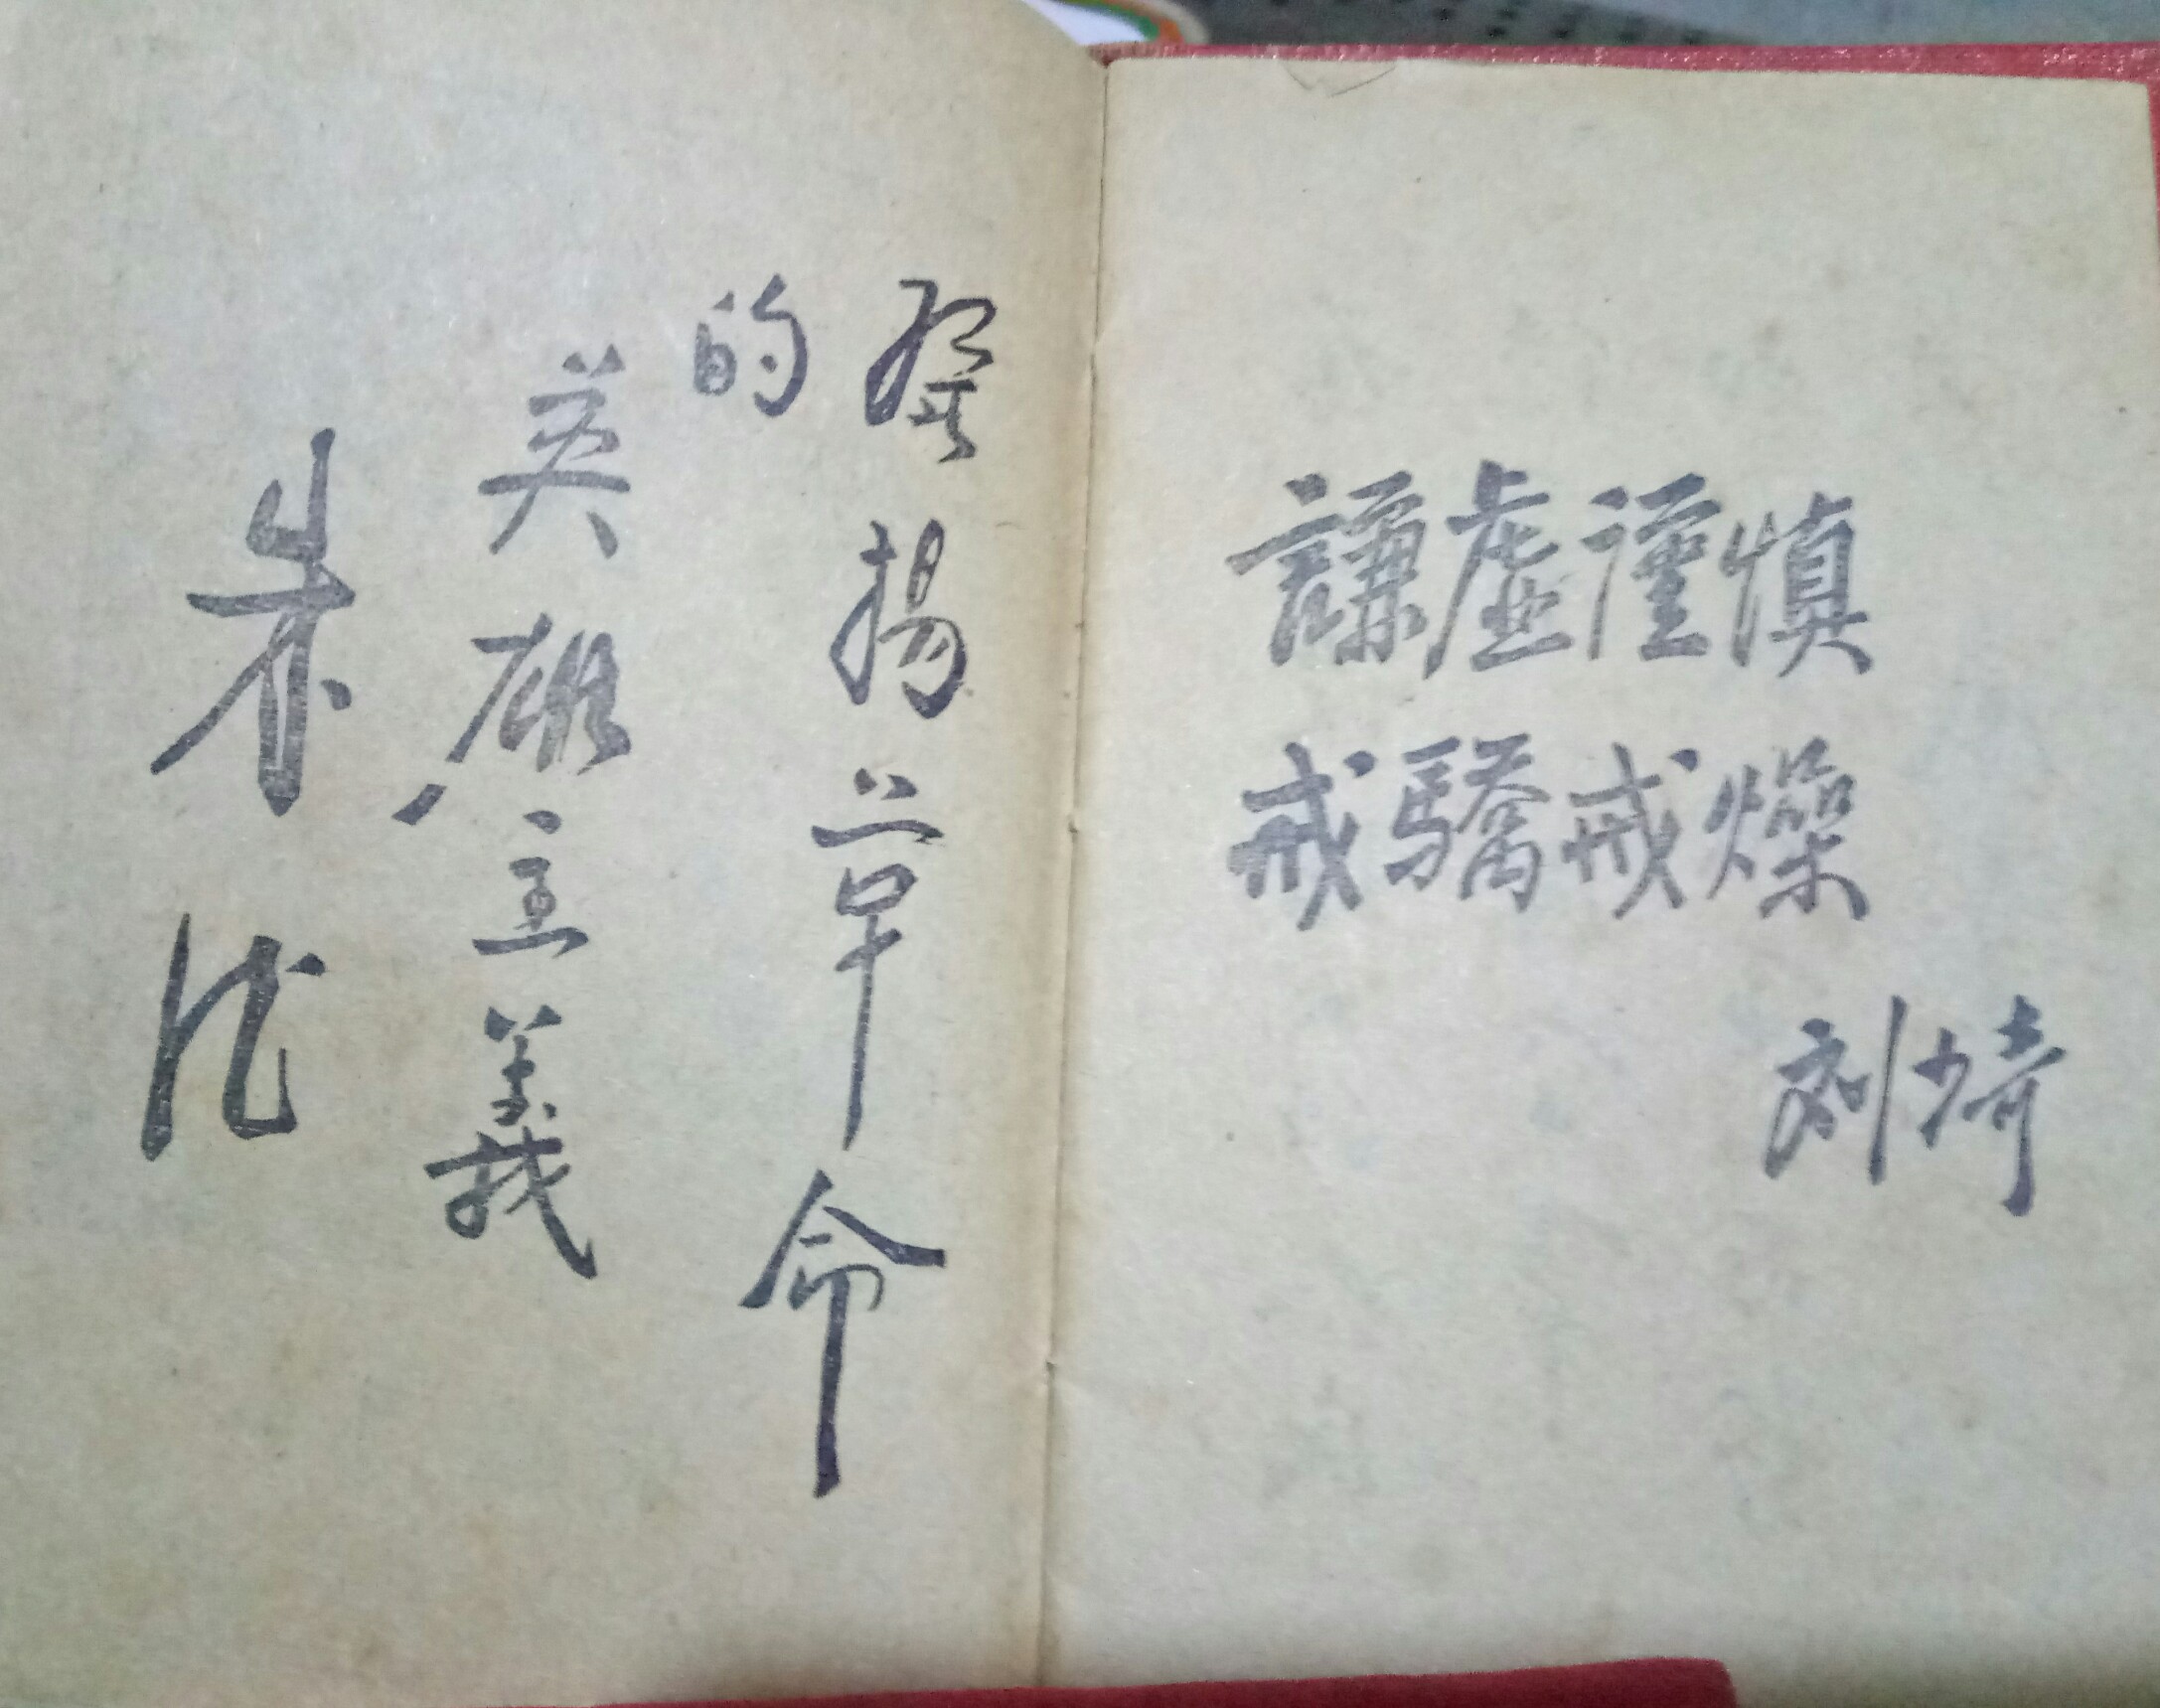 發揚革命
的
英雄主義
朱德
謙虛謹慎
戒驕戒燥
刘少奇